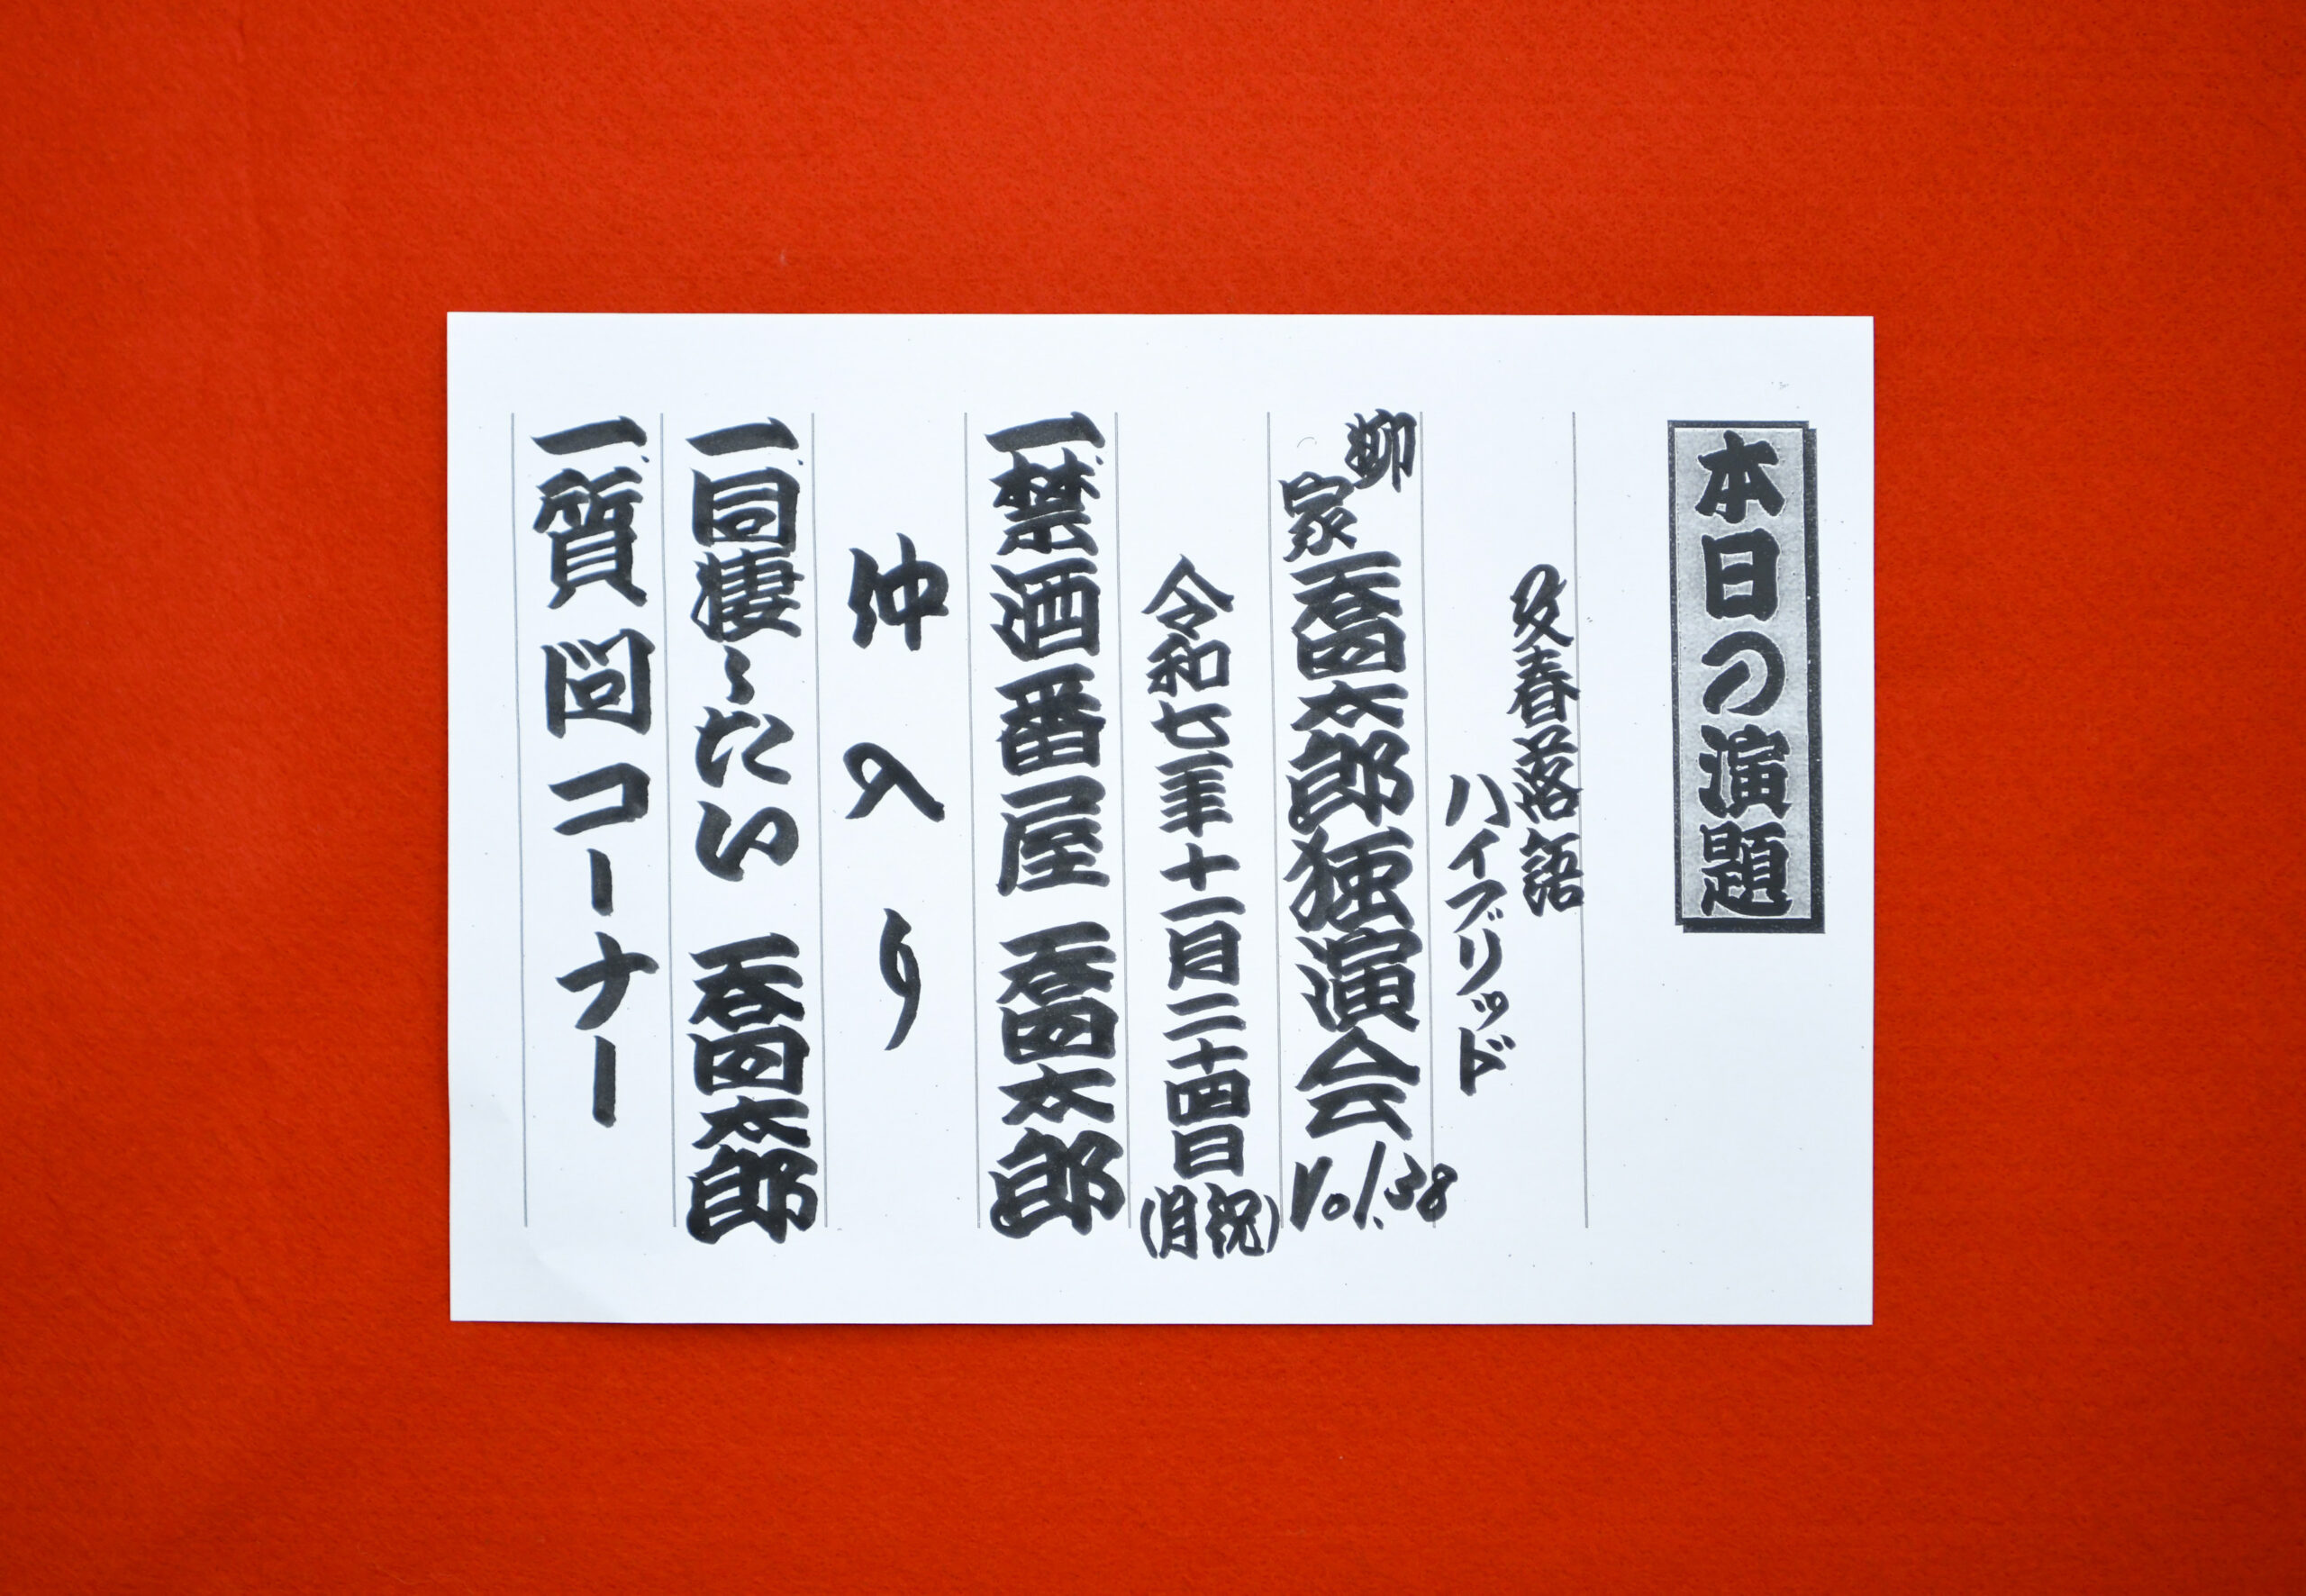 本日の演題
文春落語
ハイブリッド
柳家喬太郎独演会 Vol.38
令和七年十一月二十四日(月祝)
一、禁酒番屋 喬太郎
仲入り
一、同棲したい 喬太郎
一、質問コーナー